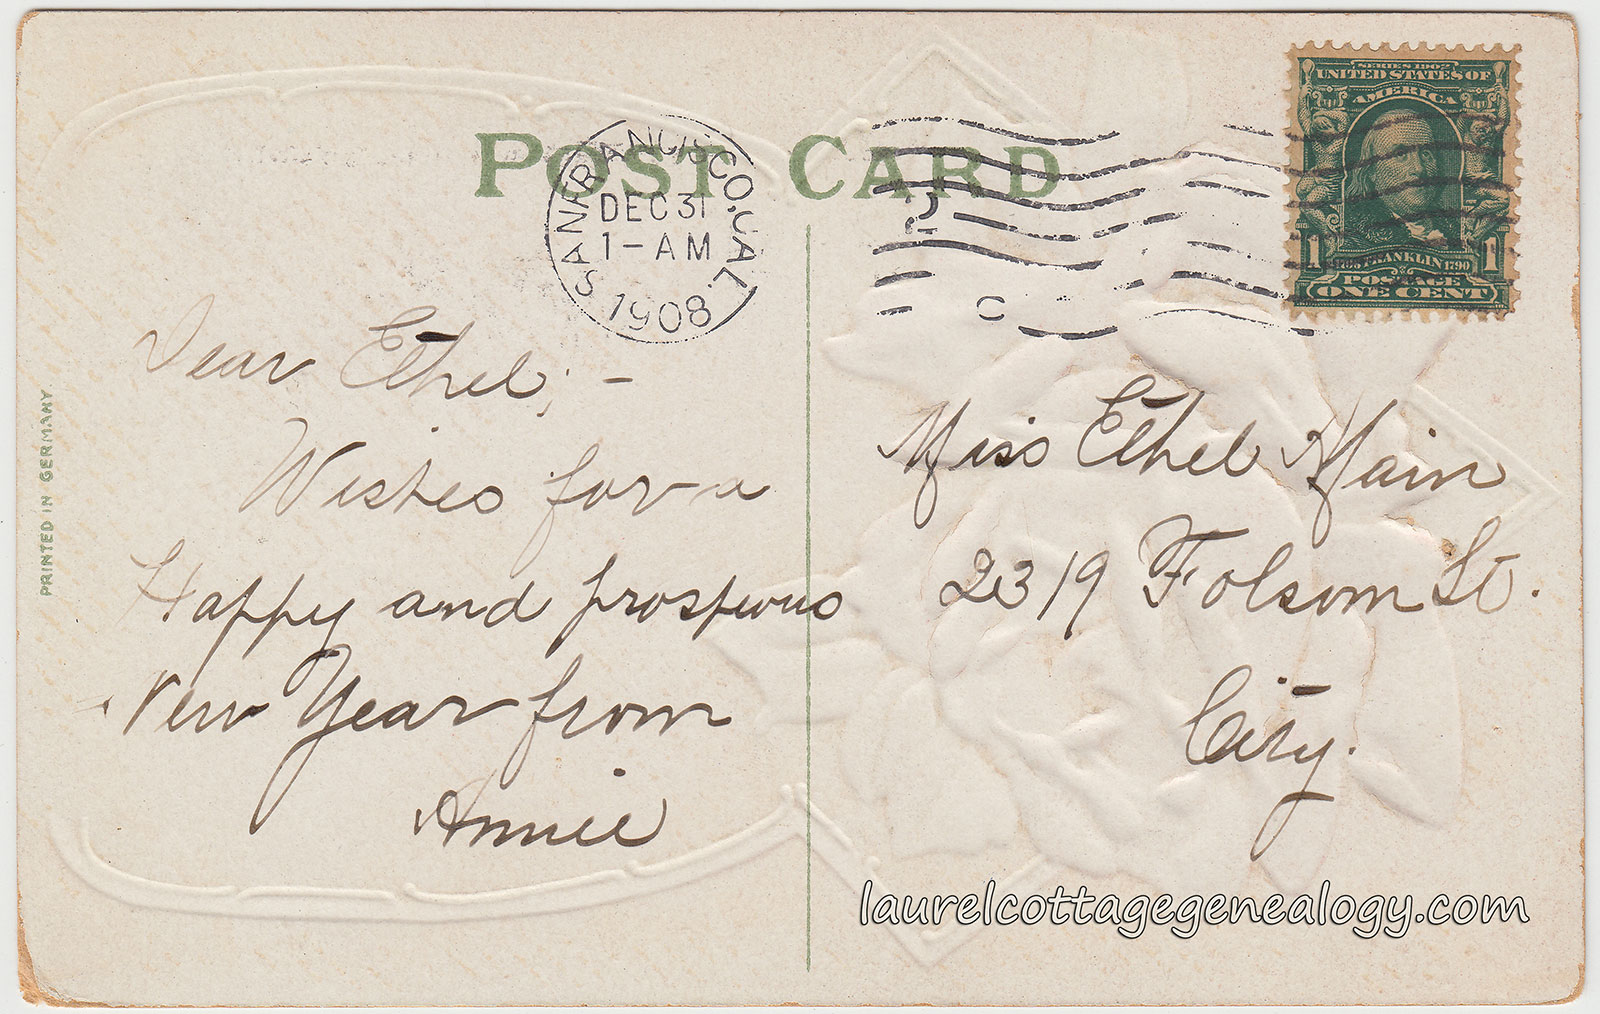 POST CARD
SAN FRANCISCO, CAL.
DEC 31
1-AM
1908
SERIES 1902
UNITED STATES OF
AMERICA
1 FRANKLIN 1790 1
POSTAGE
ONE CENT
PRINTED IN GERMANY
Dear Ethel; -
Wishes for a
Happy and prosperous
New Year from
Annie
Miss Ethel Main
2319 Folsom St.
City.
laurelcottagegenealogy.com